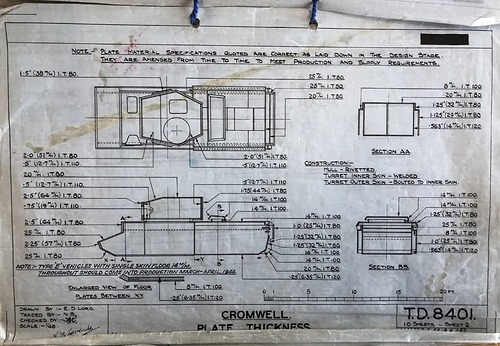 NOTE:- PLATE MATERIAL SPECIFICATIONS QUOTED ARE CORRECT AS LAID DOWN IN THE DESIGN STAGE.
THEY ARE AMENDED FROM TIME TO TIME TO MEET PRODUCTION AND SUPPLY REQUIREMENTS.
1·5" (38 m/m) I.T.80.
25 m/m I.T.80.
25 m/m I.T.80.
20 m/m I.T.80.
8 m/m I.T.100
20 m/m I.T.80
1·25" (32 m/m) I.T.80
·563" (14 m/m) I.T.120
SECTION AA
2·0" (51 m/m) I.T.80.
·5" (12·7 m/m) I.T.110.
20 m/m I.T.80.
·5" (12·7 m/m) I.T.110.
2·5" (64 m/m) I.T.80.
·75" (19 m/m) I.T.110.
2·5" (64 m/m) I.T.80.
25 m/m I.T.80.
2·25" (57 m/m) I.T.80.
25 m/m I.T.80.
2·0" (51 m/m) I.T.80
·5" (12·7 m/m) I.T.110.
CONSTRUCTION:-
HULL - RIVETTED
TURRET INNER SKIN - WELDED.
TURRET OUTER SKIN - BOLTED TO INNER SKIN.
14 m/m I.T.100
1·0" (25 m/m) I.T.80
1·25" (32 m/m) I.T.80
14 m/m I.T.100
14 m/m I.T.100
20 m/m I.T.80
·25" (6·35 m/m) I.T.120
14 m/m I.T.100.
14 m/m I.T.100.
1·25" (32 m/m) I.T.80
25 m/m I.T.80.
8 m/m I.T.100.
1·0" (25 m/m) I.T.80
·563" (14 m/m) I.T.120
SECTION BB
NOTE:- TYPE E VEHICLES WITH SINGLE SKIN FLOOR 14 m/m I.T.100
THROUGHOUT SHOULD COME INTO PRODUCTION MARCH-APRIL, 1943.
ENLARGED VIEW OF FLOOR
PLATES BETWEEN XY
8 m/m I.T.100
·25" (6·35 m/m) I.T.120
0 5 10 15 20 FT.
DRAWN BY:- E.D. LORD.
TRACED BY:- N.B.
CHECKED BY:-
SCALE:-
CROMWELL.
PLATE THICKNESS
T.D. 8401.
10 SHEETS - SHEET 2